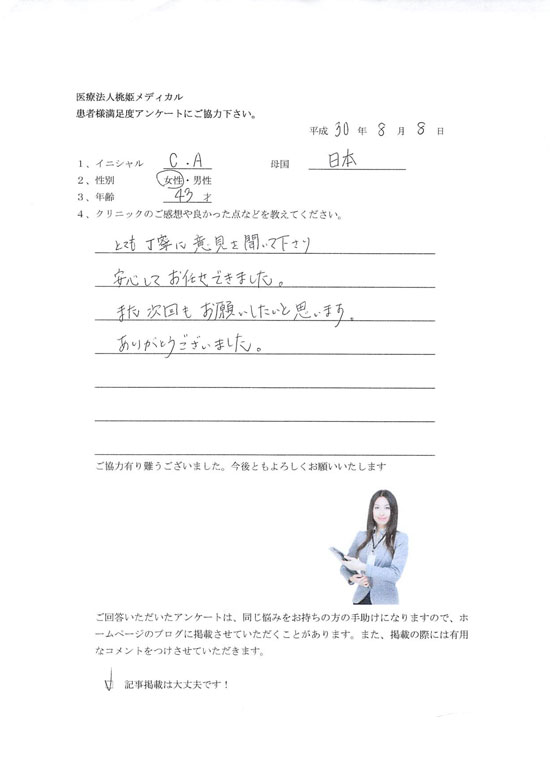 医療法人桃姫メディカル
患者様満足度アンケートにご協力下さい。
平成 30 年 8 月 8 日
1、イニシャル C.A 母国 日本
2、性別 女性・男性
3、年齢 43 才
4、クリニックのご感想や良かった点などを教えてください。
とても丁寧に意見を聞いて下さり
安心してお任せできました。
また次回もお願いしたいと思います。
ありがとうございました。
ご協力有り難うございました。今後ともよろしくお願いいたします
ご回答いただいたアンケートは、同じ悩みをお持ちの方の手助けになりますので、ホ
ームページのブログに掲載させていただくことがあります。また、掲載の際には有用
なコメントをつけさせていただきます。
記事掲載は大丈夫です！